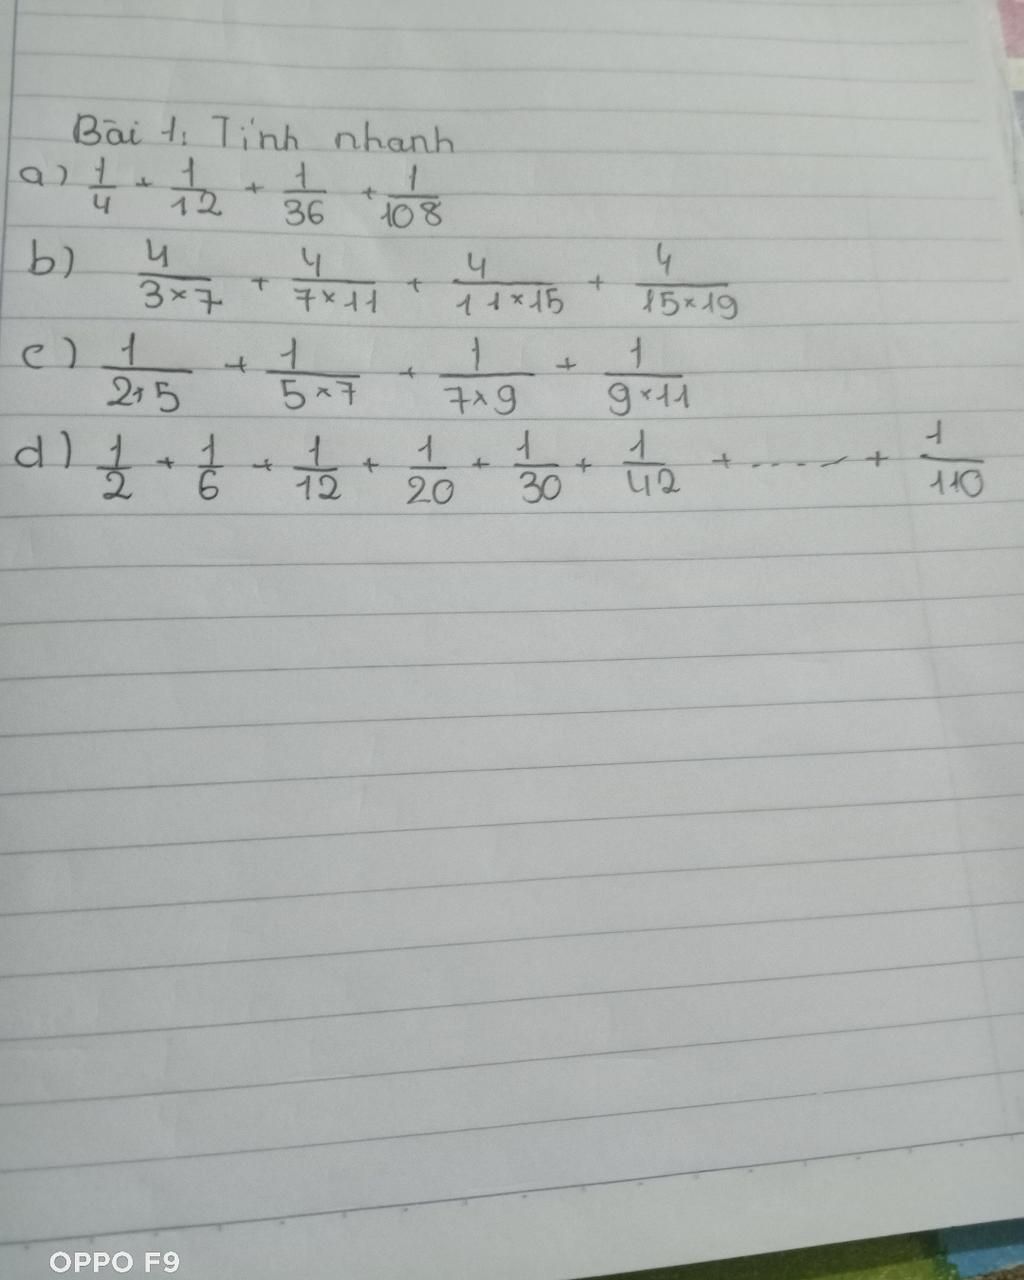 Bài 1: Tính nhanh
a) 1/4 + 1/12 + 1/36 + 1/108
b) 4/3×7 + 4/7×11 + 4/11×15 + 4/15×19
c) 1/2×5 + 1/5×7 + 1/7×9 + 1/9×11
d) 1/2 + 1/6 + 1/12 + 1/20 + 1/30 + 1/42 + ..... + 1/110
OPPO F9